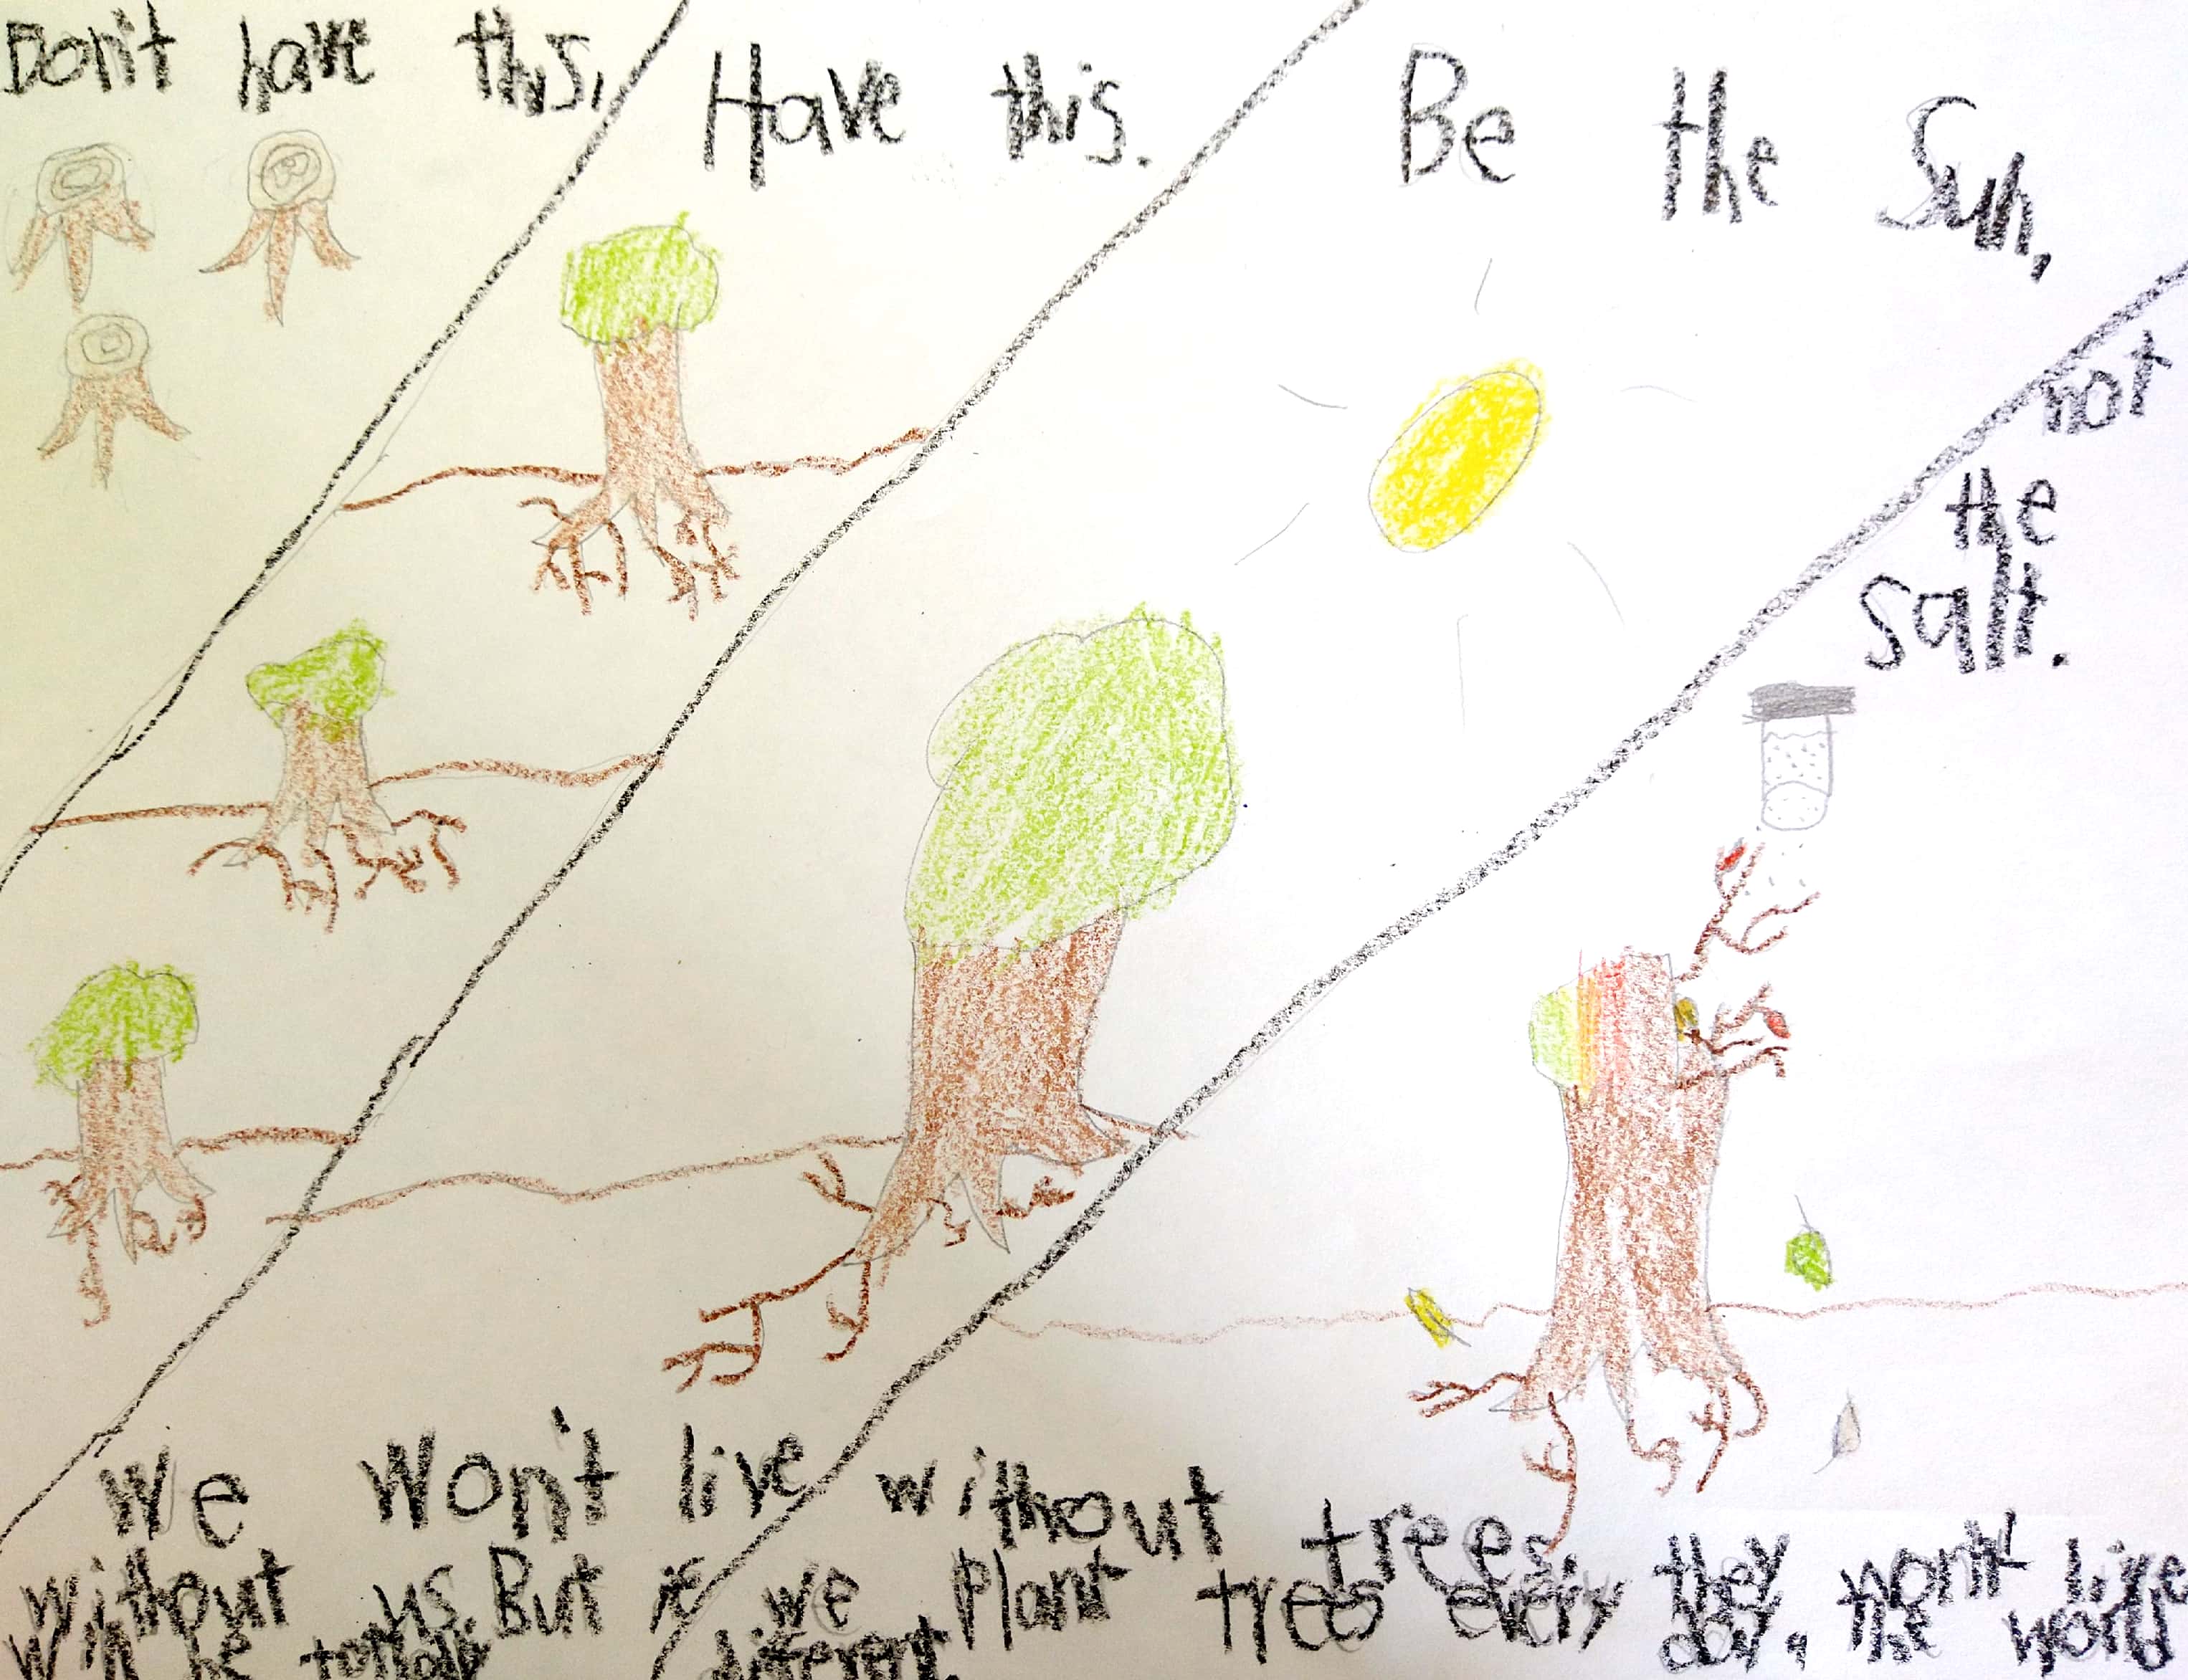 Don't have this,
Have this.
Be the Sun,
not
the
salt.
We won't live without trees, they won't live
without us. But if we Plant trees every day, the world
will be totally different.